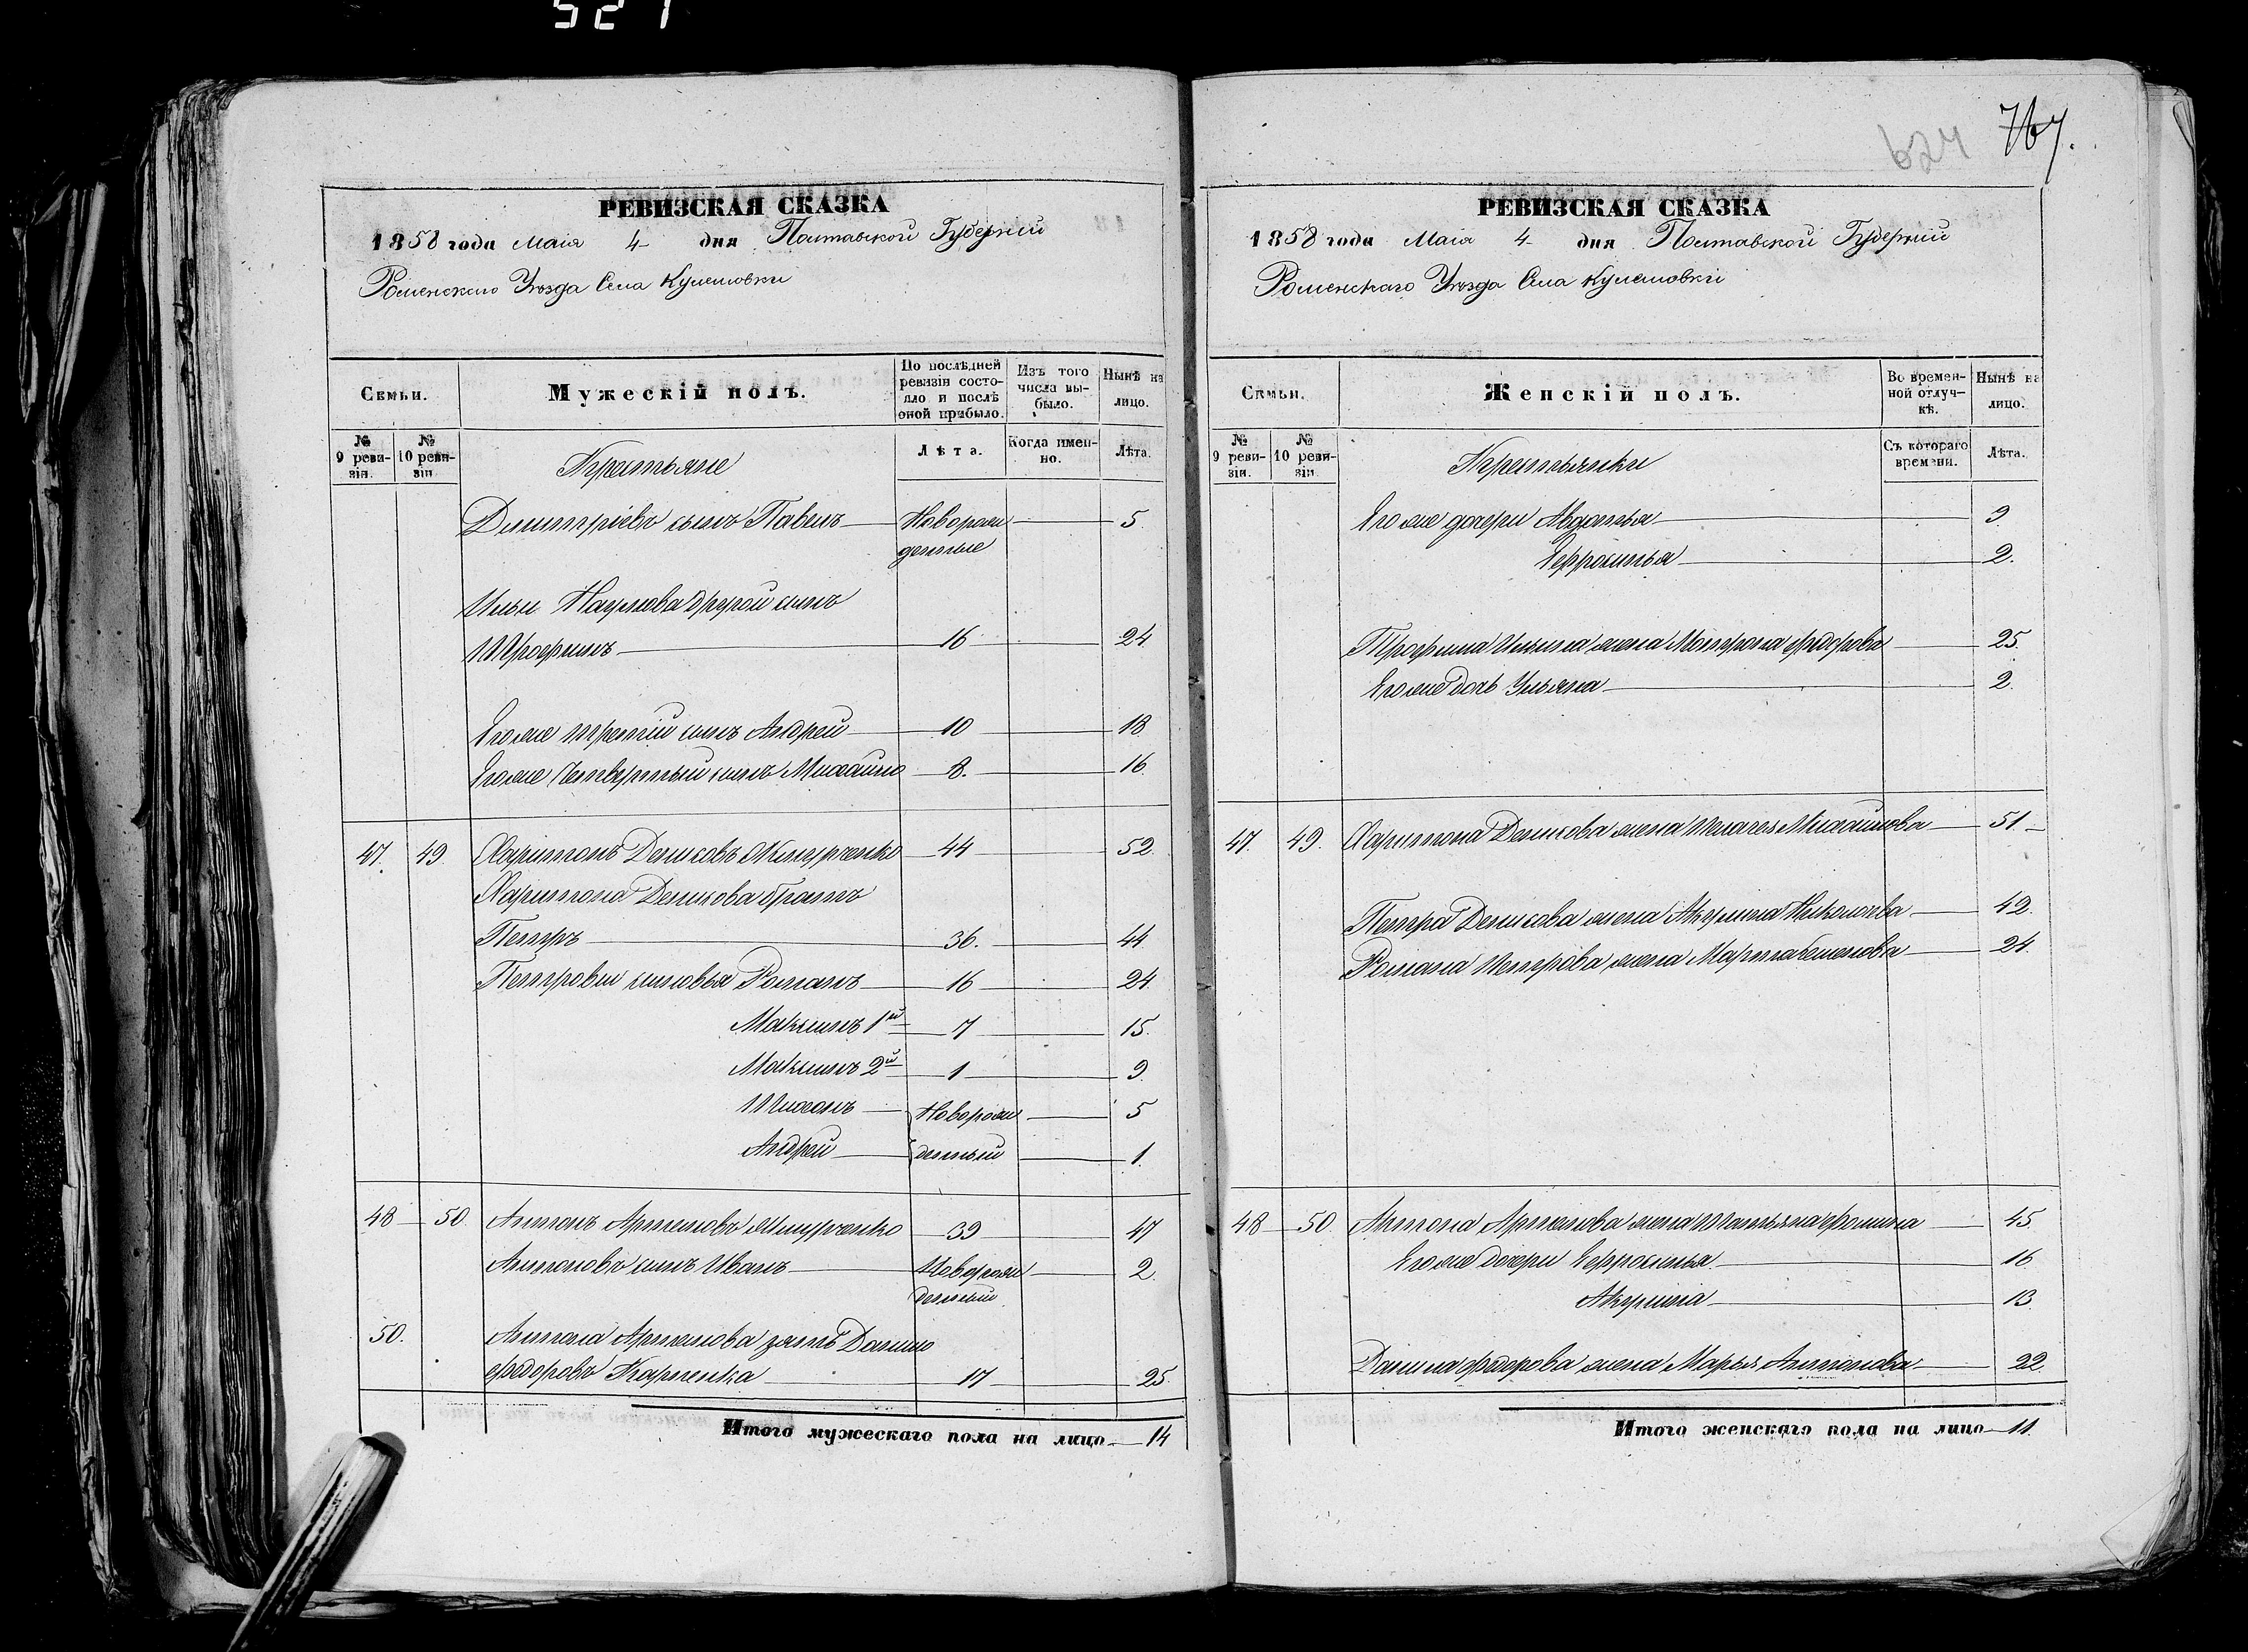 521
624 767.
РЕВИЗСКАЯ СКАЗКА
1858 года Маія 4 дня Полтавской Губерніи
Роменскаго Уѣзда Села Кулешовки
Семьи.
Мужескій полъ.
По послѣдней ревизіи состояло и послѣ оной прибыло.
Изъ того числа выбыло.
Нынѣ на лицо.
№ 9 ревизіи.
№ 10 ревизіи.
Крестьяне
Лѣта.
Когда именно.
Лѣта.
Димитріевъ сынъ Павелъ Новорож 5
денные
Ильи Наумова другой сынъ
Трофимъ 16 24
Его же третій сынъ Андрей 10 18
Его же Четвертый сынъ Михайло 8. 16
47. 49. Харитонъ Денисовъ 44 52.
Харитона Денисова братъ
Петръ 36. 44
Петровы сыновья Романъ 16 24
Максимъ 1й 7 15.
Максимъ 2й 1 9.
Тихонъ Новорож 5
Андрей денный 1.
48 50. Антонъ Артемовъ 39 47
Антоновъ сынъ Иванъ Новорож 2.
денный
50. Антона Артемова зять Данило
Федоровъ 17 25
Итого мужескаго пола на лицо 14
РЕВИЗСКАЯ СКАЗКА
1858 года Маія 4 дня Полтавской Губерніи
Роменскаго Уѣзда Села Кулешовки
Семьи.
Женскій полъ.
Во временной отлучкѣ.
Нынѣ на лицо.
№ 9 ревизіи.
№ 10 ревизіи.
Крестьянки
Съ котораго времени.
Лѣта.
Его же дочери Авдотья 9
Ефросинья 2.
Трофима Ильина жена Мотрона Федорова 25.
Его же дочь Ульяна 2.
47. 49. Харитона Денисова жена Пелагея Михайлова 51
Петра Денисова жена Акулина Николаева 42.
Романа Петрова жена Марта Семенова 24.
48 50. Антона Артемова жена Татьяна Фомина 45
Его же дочери Ефросинья 16
Акулина 13
Данила Федорова жена Марья Антонова 22
Итого женскаго пола на лицо 11